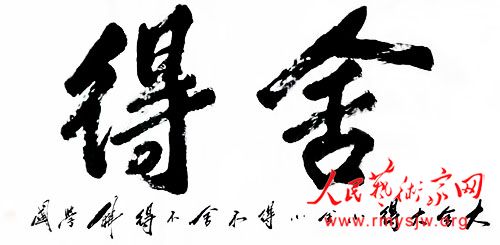 舍得
大舍大得小舍小得不舍不得 學國
人民藝術家网
www.rmysjw.org